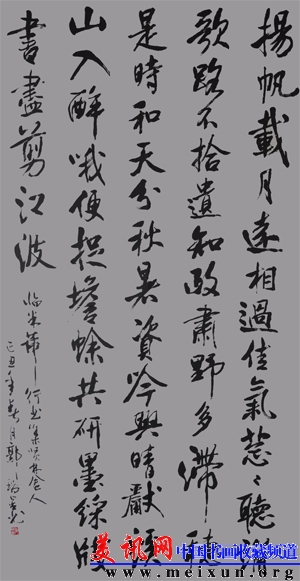 揚帆載月遠相過佳氣葱〻聽誦
歌路不拾遺知政肅野多滯穗
是時和天分秋暑資吟興晴獻溪
山入醉哦便捉蟾蜍共研墨綵牋
書盡剪江波
临米芾行书集贤林舍人
己丑年春月
美讯网 中国书画收藏频道
www.meixun.org